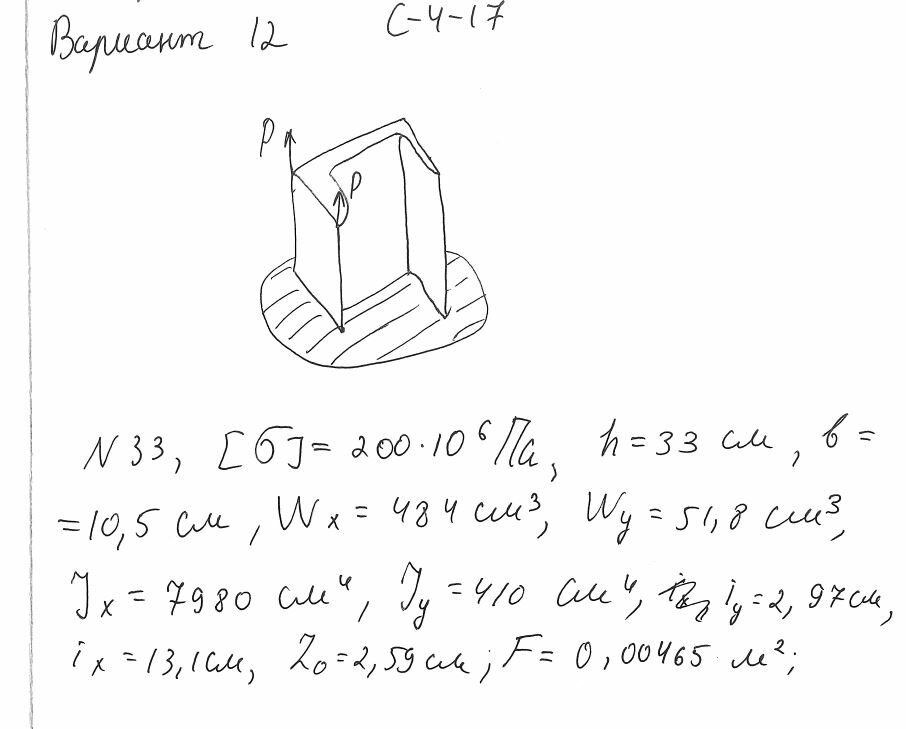 Вариант 12 С-4-17
P
P
N 33, [σ] = 200·10⁶ Па, h = 33 см, b =
= 10,5 см, Wx = 484 см³, Wy = 51,8 см³,
Jx = 7980 см⁴, Jy = 410 см⁴, iy = 2,97 см,
ix = 13,1 см, Z₀ = 2,59 см; F = 0,00465 м²;